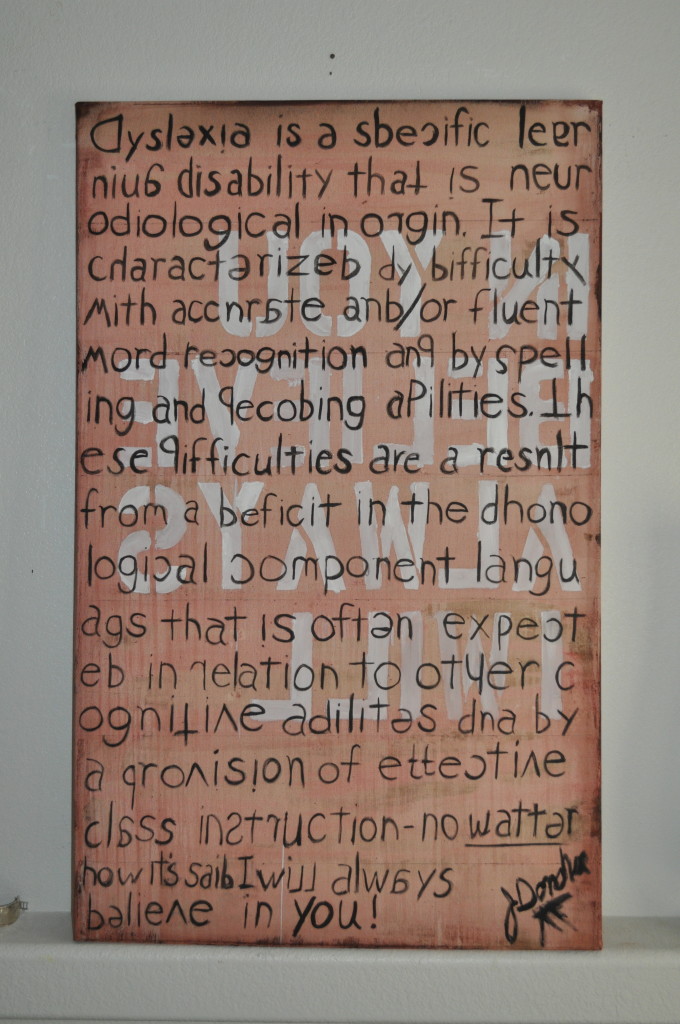 Dyslexia is a sbecific leer
niug disability that is neur
odiological in orgin. It is
cdaracterizeb dy bifficulty
mith accnrate anb/or fluent
mord recognition anq by spell
ing and qecobing aPilities. Th
ese qifficulties are a resnlt
from a beficit in the dhono
logical component langu
ags that is often expect
eb in relation to otyer c
ognitive adilites dna by
a qrovision of ettective
class instruction-no watter
how it's saib I will always
balieve in you!
J Donohue
IN YOU
BELIEVE
ALWAYS
I WILL